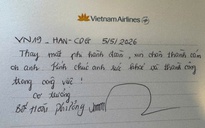 Vietnam Airlines
VN19 - HAN-CDG 5/5/2026
Thay mặt phi hành đoàn, xin chân thành cảm
ơn anh. Kính chúc anh sức khoẻ và thành công
trong công việc!
Cơ trưởng